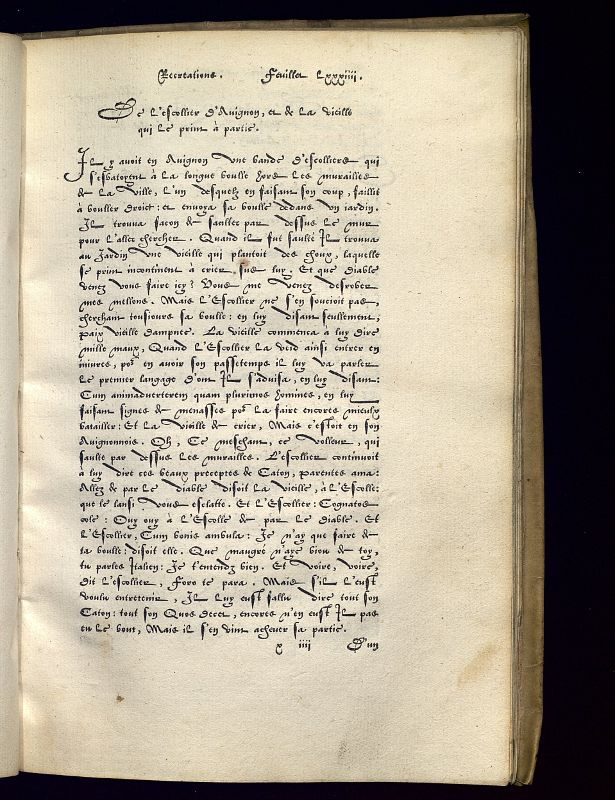 Recreations. Feuillet Lxxxiiii.
De l'escollier d'Avignon, et de la vieille
qui le print à partie.
Il y avoit en Avignon une bande d'escolliers qui
s'esbatoyent à la longue boulle hors les murailles
de la ville, l'un desquelz en faisant son coup, faillit
à bouller droict: et envoya sa boulle dedans un jardin.
Il trouva façon de saulter par dessus le mur
pour l'aller chercher. Quand il fut saulté Il trouva
au Jardin une vieille qui plantoit des choux, laquelle
se print incontinent à crier sus luy. Et que diable
venez vous faire icy? Vous me venez desrober
mes mellons. Mais l'Escollier ne s'en soucioit pas,
cherchant tousiours sa boulle: en luy disant seullement,
paix vieille dampnee. La vieille commença à luy dire
mille maux, Quand l'Escollier la veid ainsi entrer en
iniures, por en avoir son passetemps il luy va parler
le premier langage d'ont Il s'advisa, en luy disant:
Cum animadverterem quam plurimos homines, en luy
faisant signes de menasses por la faire encores mieulx
batailler: Et la vieille de crier, Mais c'estoit en son
Avignonnois. Oh, Ce meschant, ce volleur, qui
saulte par dessus les murailles. L'escollier continuoit
à luy dire ces beaux preceptes de Caton, parentes ama:
Allez de par le diable disoit la vieille, à l'Escolle:
que le lansi vous esclatte. Et l'Escollier: Cognatos
cole: Ouy ouy à l'Escolle de par le diable. Et
l'Escollier, Cum bonis ambula: Je n'ay que faire de
ta boulle: disoit elle. Que maugré n'aye biou de toy,
tu parles Italien: Je t'entendz bien. Et voire, voire,
dit l'escollier, Foro te para. Mais s'il l'eust
voulu entretenir, Il luy eust fallu dire tout son
Caton: tout son Quos decet, encores n'en eust Il pas
eu le bout, Mais il s'en vint achever sa partie.
x iiii D'un